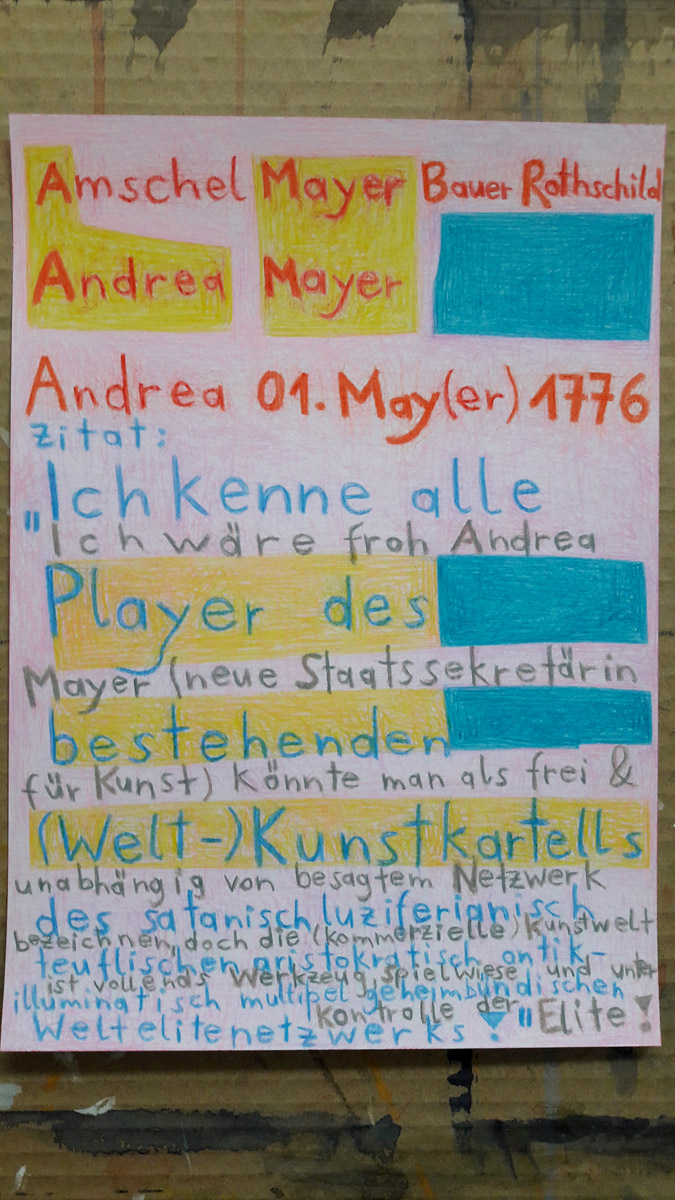 Amschel Mayer Bauer Rothschild
Andrea Mayer
Andrea 01. May(er) 1776
Zitat:
„Ich kenne alle
"Ich wäre froh Andrea
Player des
Mayer (neue Staatssekretärin
bestehenden
für Kunst) könnte man als frei &
(Welt-)Kunstkartells
unabhängig von besagtem Netzwerk
des satanischluziferianisch
bezeichnen, doch die (kommerzielle) Kunstwelt
teuflischen aristokratisch antik-
ist vollends Werkzeug, spielwiese und unter
illuminatisch multipel geheimbündischen
Kontrolle der "Elite!
Weltelitenetzwerks!"